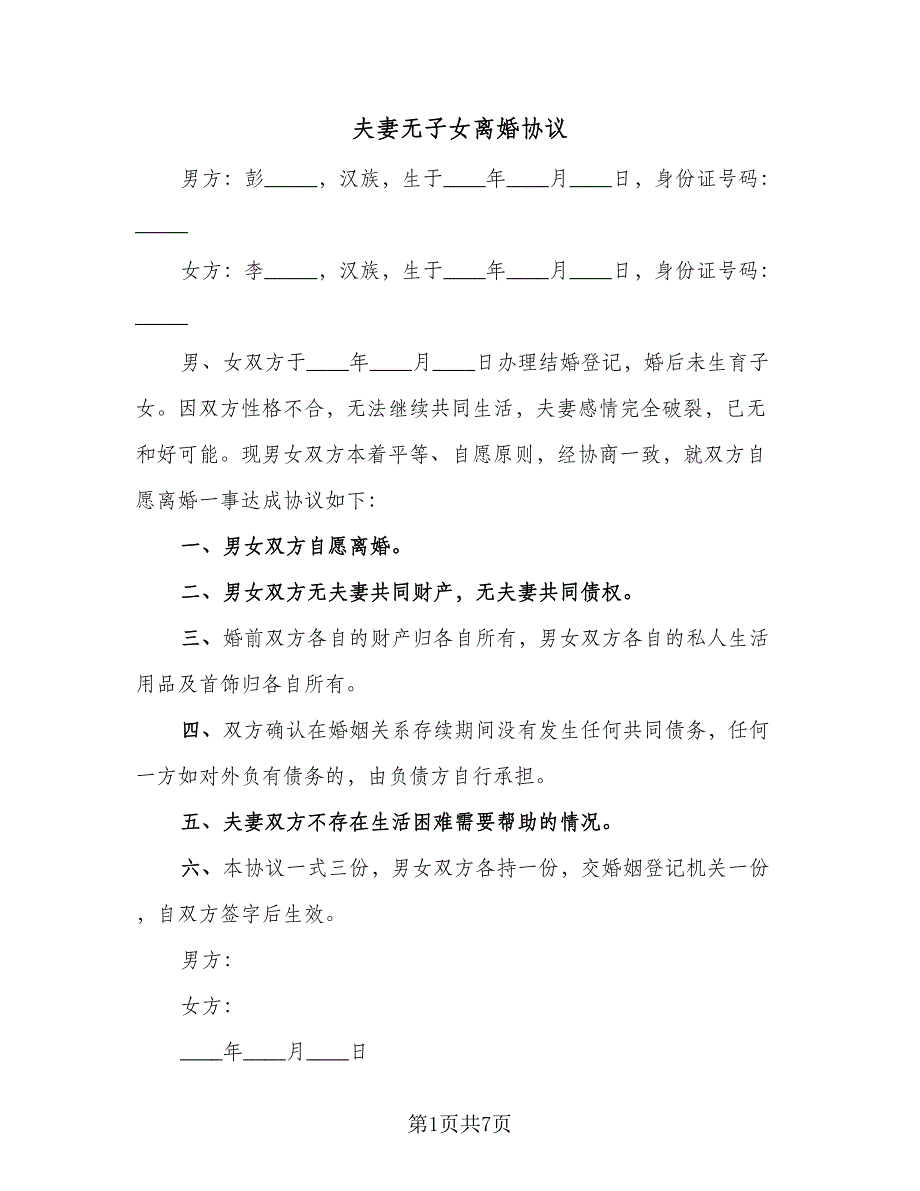 夫妻无子女离婚协议
男方：彭_____，汉族，生于____年____月____日，身份证号码：
_____
女方：李_____，汉族，生于____年____月____日，身份证号码：
_____
男、女双方于____年____月____日办理结婚登记，婚后未生育子
女。因双方性格不合，无法继续共同生活，夫妻感情完全破裂，已无
和好可能。现男女双方本着平等、自愿原则，经协商一致，就双方自
愿离婚一事达成协议如下：
一、男女双方自愿离婚。
二、男女双方无夫妻共同财产，无夫妻共同债权。
三、婚前双方各自的财产归各自所有，男女双方各自的私人生活
用品及首饰归各自所有。
四、双方确认在婚姻关系存续期间没有发生任何共同债务，任何
一方如对外负有债务的，由负债方自行承担。
五、夫妻双方不存在生活困难需要帮助的情况。
六、本协议一式三份，男女双方各持一份，交婚姻登记机关一份
，自双方签字后生效。
男方：
女方：
____年____月____日
第1页共7页